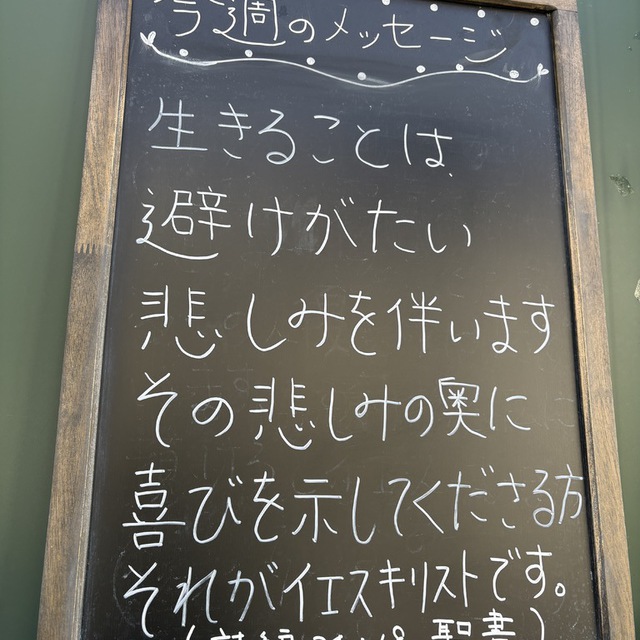 今週のメッセージ
生きることは、
避けがたい
悲しみを伴います
その悲しみの奥に
喜びを示してくださる方
それがイエスキリストです。
聖書)